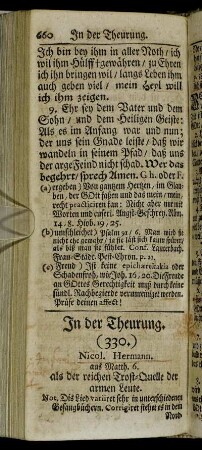 660 In der Theurung.
Ich bin bey ihm in aller Noth / ich
wil ihm Hülff gewähren / zu Ehren
ich ihn bringen wil / langs Leben ihm
auch geben viel / mein Heyl will
ich ihm zeigen.
9. Ehr sey dem Vater und dem
Sohn / und dem Heiligen Geiste:
Als es im Anfang war und nun;
der uns sein Gnade leiste / daß wir
wandeln in seinem Pfad / daß uns
der arge Feind nicht schad. Wer das
begehrt / sprech Amen. G. h. oder F.
(a) ergeben) Von gantzem Hertzen, im Glau-
ben, der GOtt fassen und das
recht practiciren kan: Nicht aber nur mit
Worten und
14. 8. Hiob. 19, 25.
(b) umschleichet) Psalm 91 / 6. Man wirds
nicht ehe gewahr / ja sie läst sich kaum spüren /
als bis man sie fühlet. Conf. Lauterbach.
Frau-Städt. Pest-Chron. p. 11.
(c) Freud) Ist keine epicharekakia oder
Schadenfroh, wie Joh. 16, 20. Die Freude
an GOttes Gerechtigkeit muß durch keine
sündl. Rachbegierde verunreiniget werden.
Prüfe deinen affect!
In der Theurung.
(330.)
Nicol. Hermann.
aus Matth. 6.
als der reichen Trost-Quelle der
armen Leute.
Not. Dis Lied variiret sehr in unterschiedenen
Gesangbüchern. Corrigiret stehet es in dem
Nord-